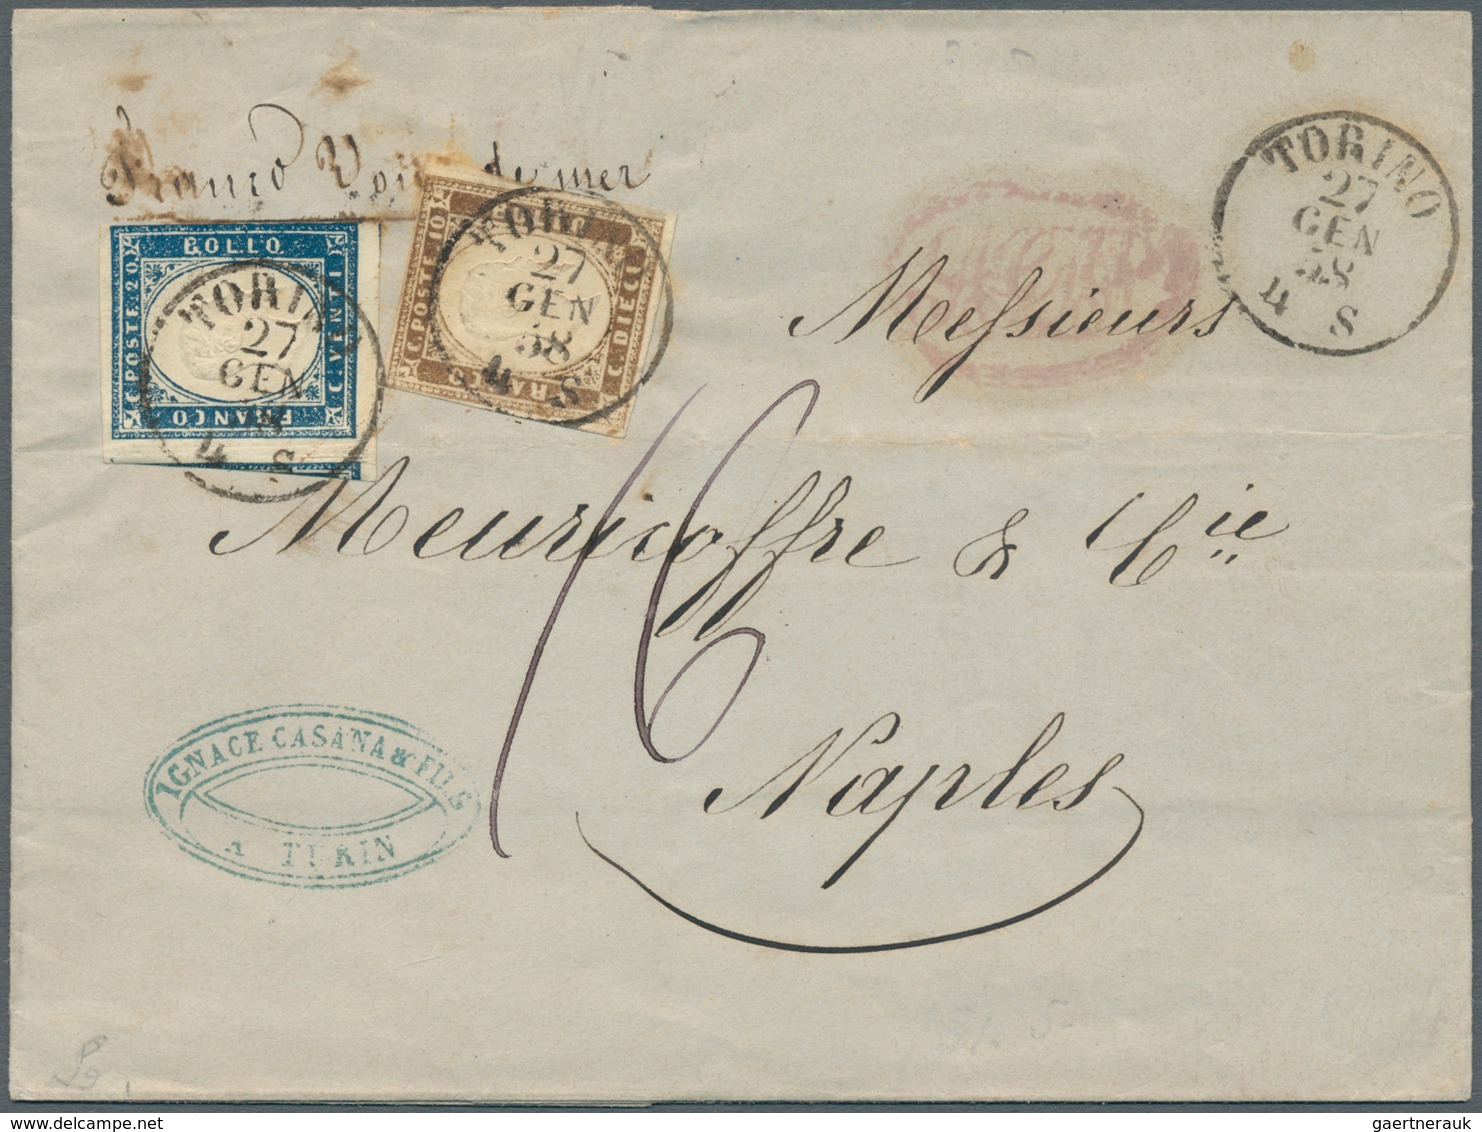 Franco Voie de mer
TORINO
27
GEN
58
4 S
BOLLO
C. POSTE 20
C. VENTI
FRANCO
TORINO
27
GEN
58
4 S
C. POSTE 10
C. DIECI
TORINO
27
GEN
58
4 S
Messieurs
Meuricoffre & Cie
16
Naples
IGNACE CASANA & FILS
A TURIN
gaertnerauk